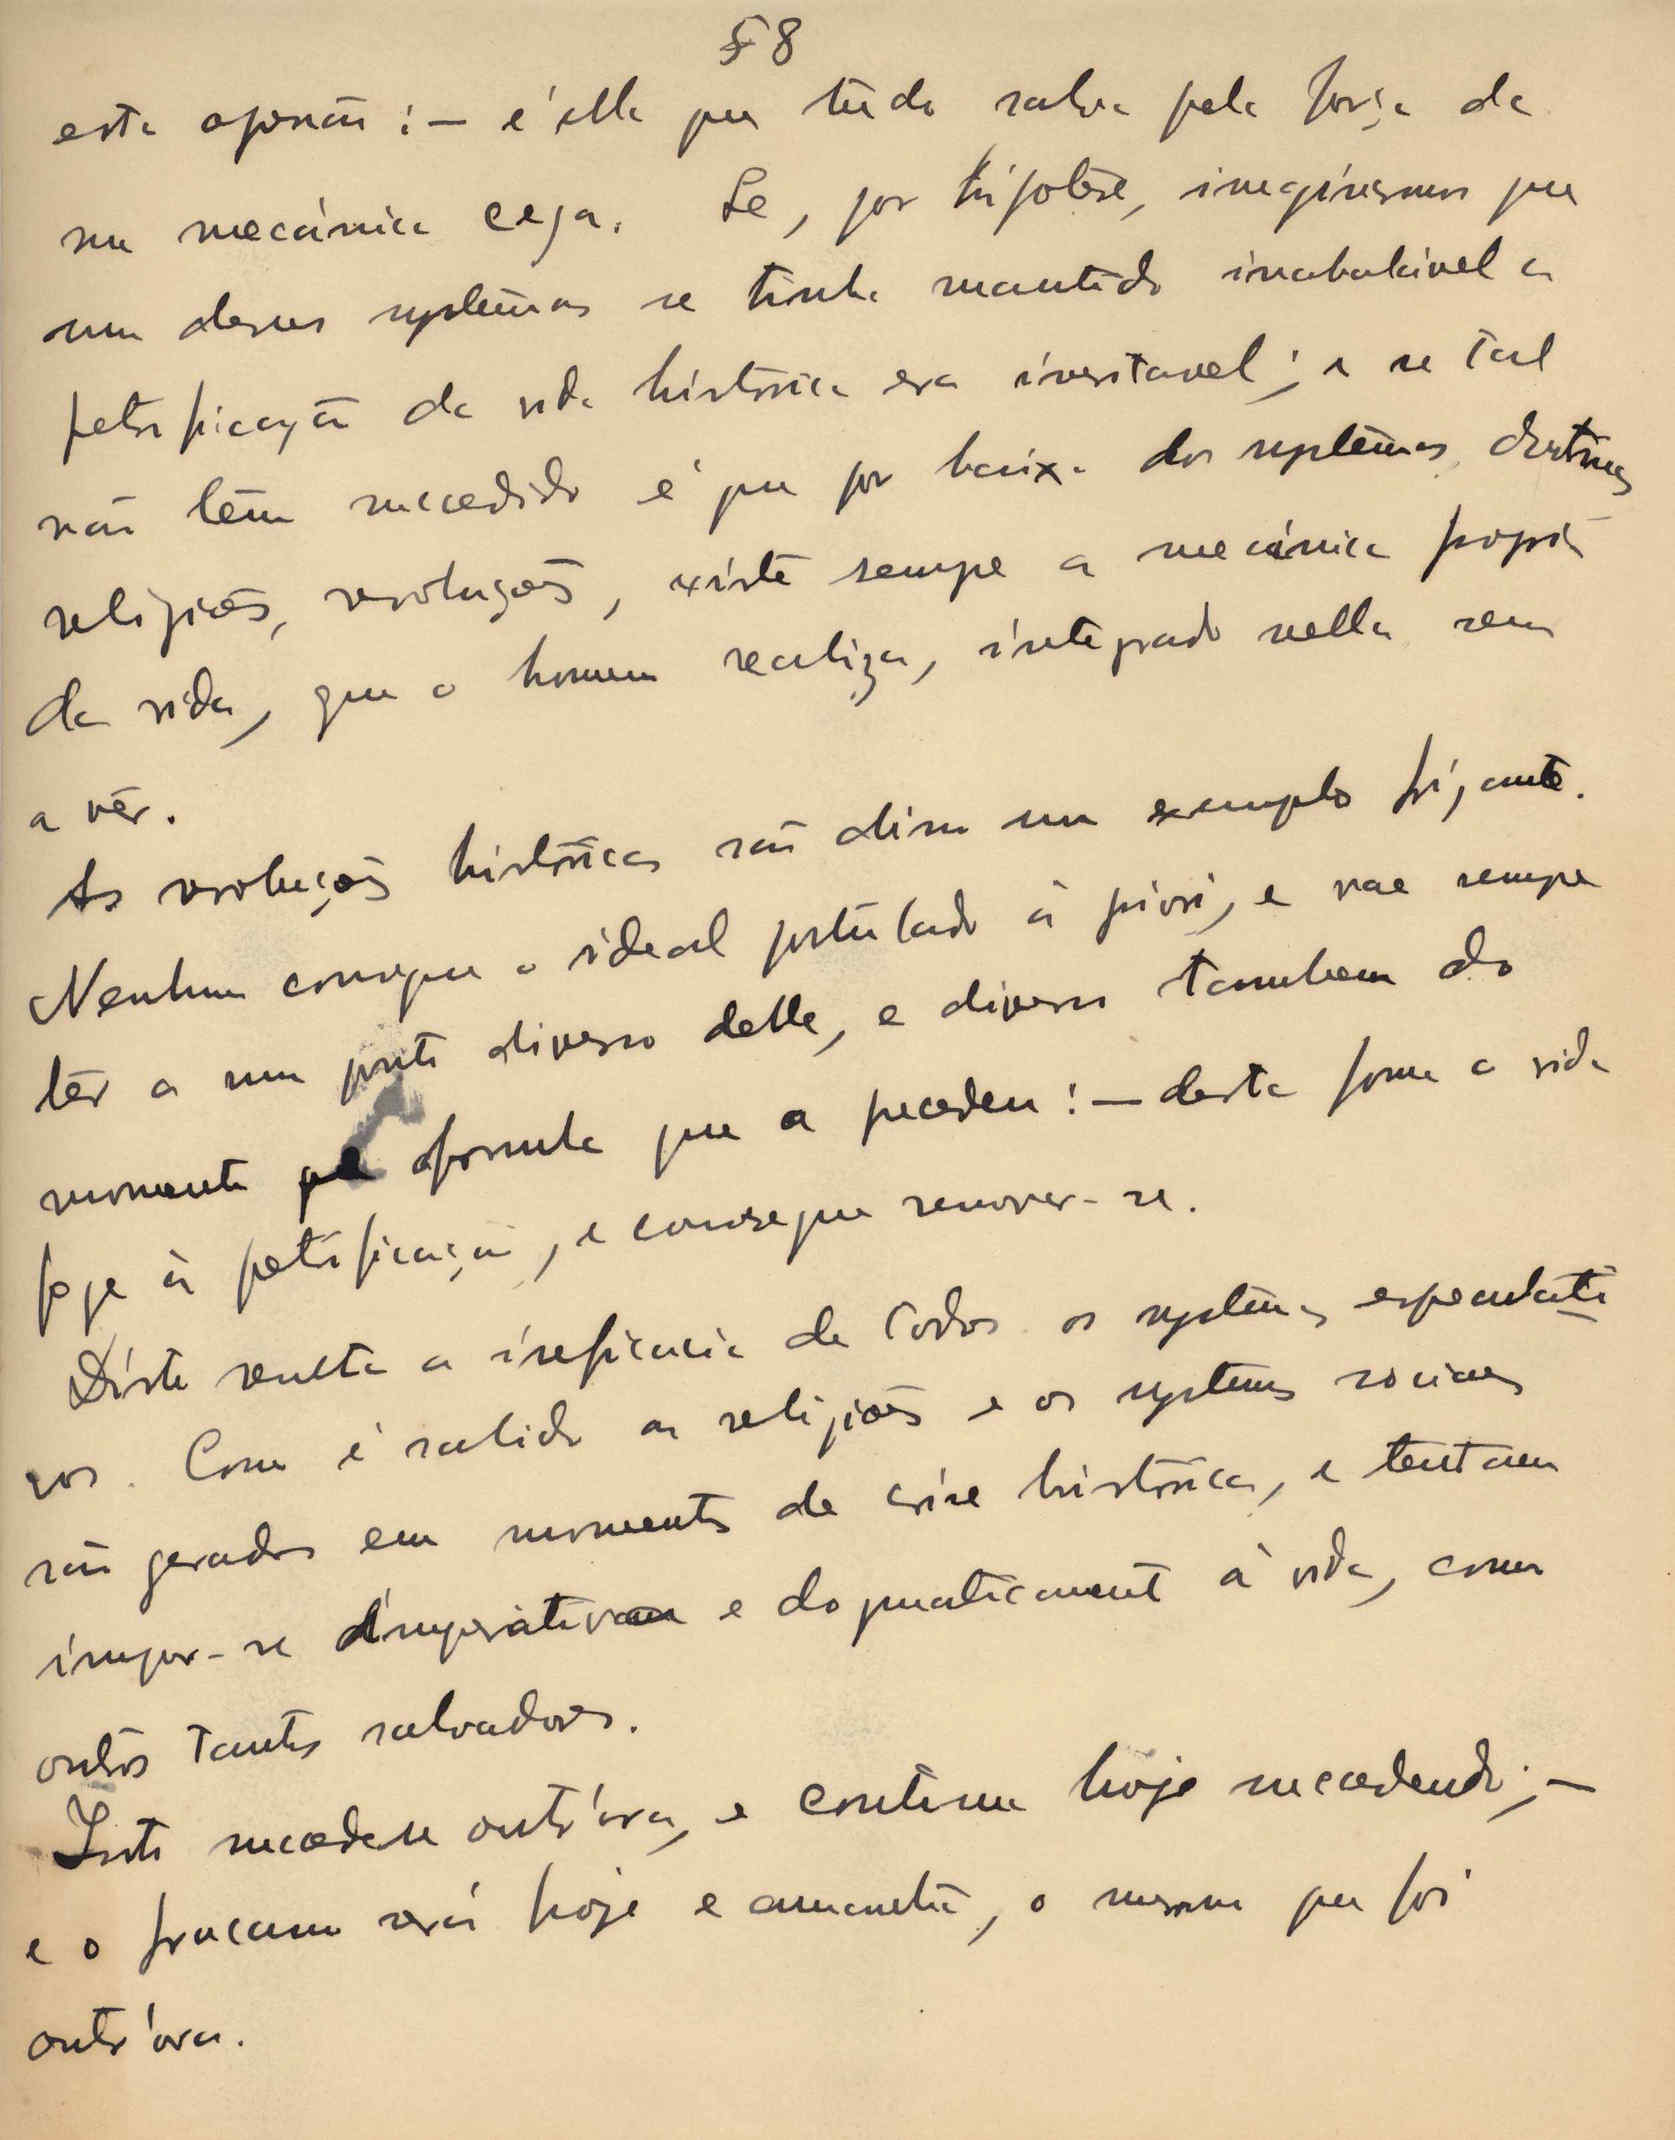 58
esta oposição: — é ella que tudo salva pela força da
sua mecánica cega. Se, por hipotese, imaginarmos que
um desses systemas se tinha mantido inabalável a
petrificação da vida histórica era inevitavel; e se tal
não tem succedido é que por baixo dos systemas, doutrinas,
religiões, revoluções, existe sempre a mecánica propria
da vida, que o homem realiza, integrado nella sem
a vêr.
As revoluções históricas são disso um exemplo frizante.
Nenhuma consegue o ideal postulado à priori, e vae sempre
têr a um ponto diverso delle, e diverso tambem do
momento formula que a precedeu: — desta forma a vida
foge à petrificação, e consegue renovar-se.
Disto resulta a ineficacia de todos os systemas especulati
vos. Como é sabido as religiões e os systemas sociaes
são gerados em momentos de crise histórica, e tentam
impor-se imperativa e dogmaticamente à vida, como
outros tantos salvadores.
Isto succedeu outr'ora, e continua hoje succedendo; —
e o fracasso será hoje e amanhã, o mesmo que foi
outr'ora.